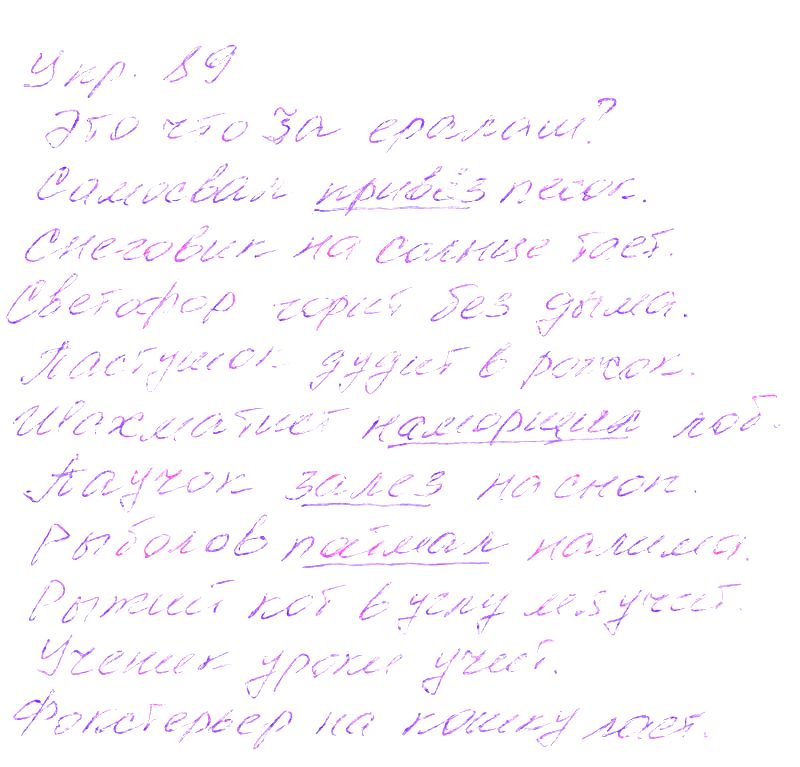 Укр. 89
Это что за ералаш?
Самосвал привёз песок.
Снеговик на солнце тает.
Светофор горит без дыма.
Пастушок дудит в рожок.
Шахматист наморщил лоб.
Паучок залез на сноп.
Рыболов поймал налима.
Рыжий кот в углу мяучит.
Ученик уроки учит.
Фокстерьер на кошку лает.